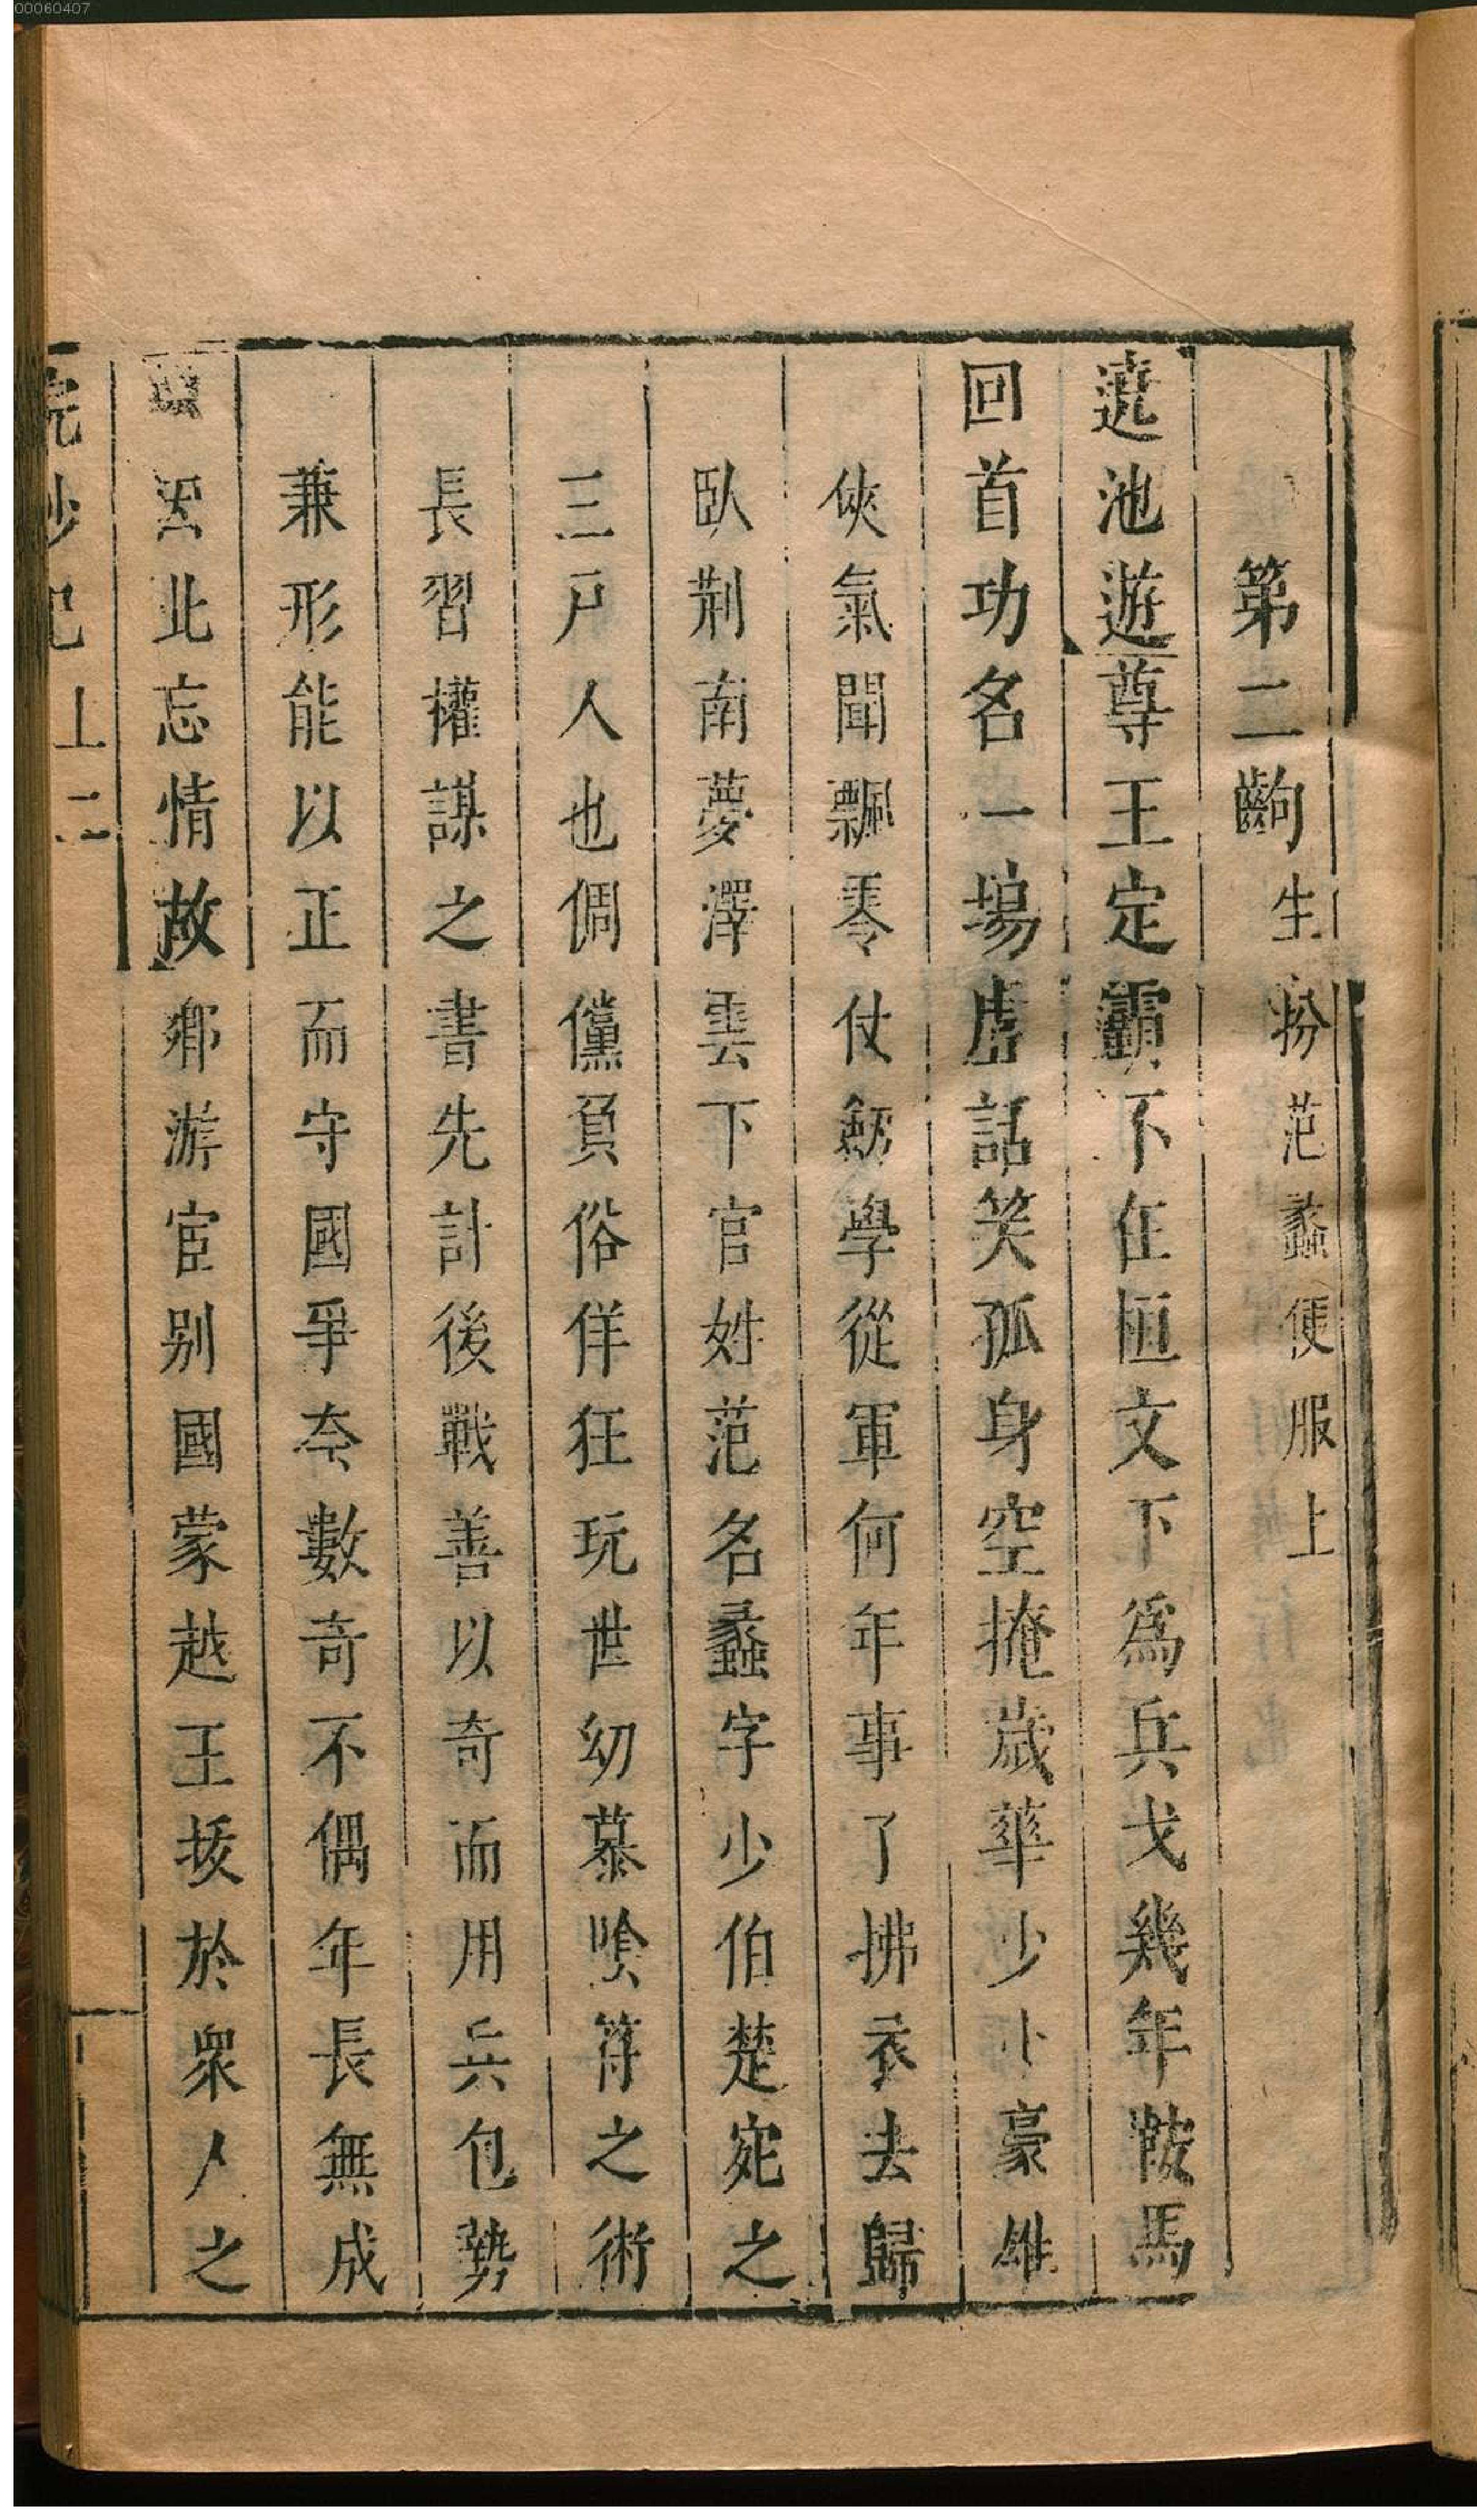 00060407
第二齣 生扮范蠡便服上
遶池遊尊王定霸不在桓文下爲兵戈幾年鞍馬
回首功名一場虛話笑孤身空掩歲華少小豪雄
俠氣聞飄零仗劒學從軍何年事了拂衣去歸
臥荆南夢澤雲下官姓范名蠡字少伯楚宛之
三戶人也倜儻負俗佯狂玩世幼慕陰符之術
長習權謀之書先計後戰善以奇而用兵包勢
兼形能以正而守國爭奈數奇不偶年長無成
因此忘情故鄉游宦别國蒙越王拔於衆人之
浣紗記 上 二